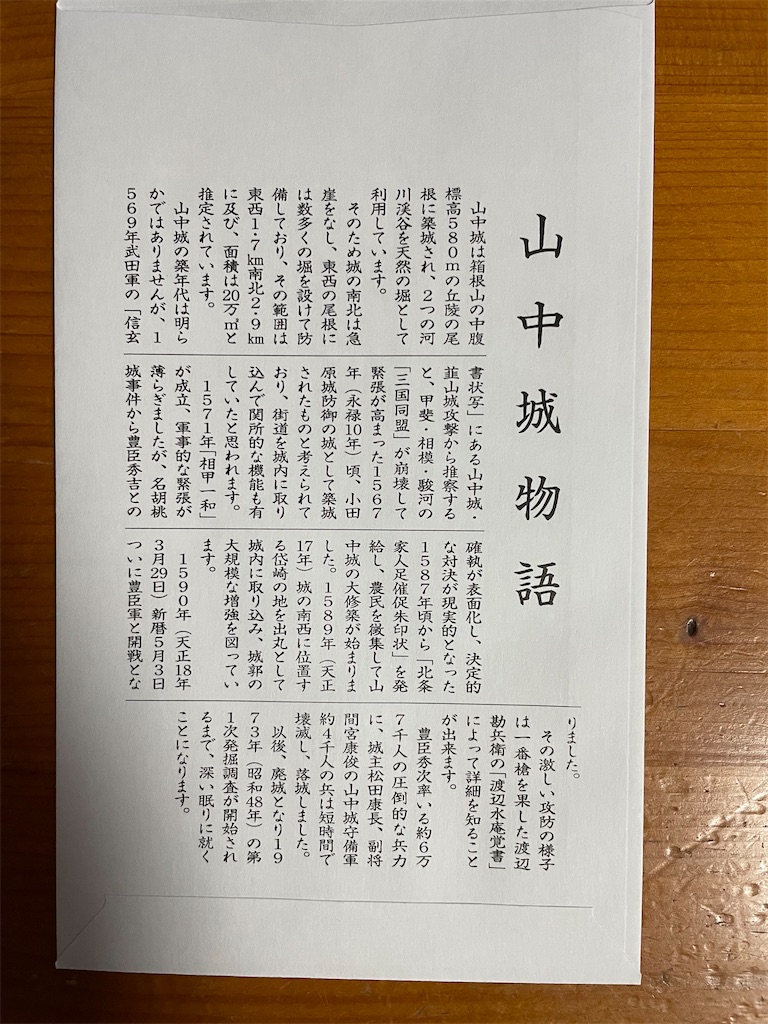 山中城物語
山中城は箱根山の中腹
標高580mの丘陵の尾
根に築城され、2つの河
川渓谷を天然の堀として
利用しています。
そのため城の南北は急
崖をなし、東西の尾根に
は数多くの堀を設けて防
備しており、その範囲は
東西1・7㎞南北2・9㎞
に及び、面積は20万㎡と
推定されています。
山中城の築年代は明ら
かではありませんが、1
569年武田軍の「信玄
書状写」にある山中城・
韮山城攻撃から推察する
と、甲斐・相模・駿河の
「三国同盟」が崩壊して
緊張が高まった1567
年（永禄10年）頃、小田
原城防御の城として築城
されたものと考えられて
おり、街道を城内に取り
込んで関所的な機能も有
していたと思われます。
1571年「相甲一和」
が成立、軍事的な緊張が
薄らぎましたが、名胡桃
城事件から豊臣秀吉との
確執が表面化し、決定的
な対決が現実的となった
1587年頃から「北条
家人足催促朱印状」を発
給し、農民を徴集して山
中城の大修築が始まりま
した。1589年（天正
17年）城の南西に位置す
る岱崎の地を出丸として
城内に取り込み、城郭の
大規模な増強を図ってい
ます。
1590年（天正18年
3月29日）新暦5月3日
ついに豊臣軍と開戦とな
りました。
その激しい攻防の様子
は一番槍を果した渡辺
勘兵衛の「渡辺水庵覚書」
によって詳細を知ること
が出来ます。
豊臣秀次率いる約6万
7千人の圧倒的な兵力
に、城主松田康長、副将
間宮康俊の山中城守備軍
約4千人の兵は短時間で
壊滅し、落城しました。
以後、廃城となり19
73年（昭和48年）の第
1次発掘調査が開始され
るまで、深い眠りに就く
ことになります。